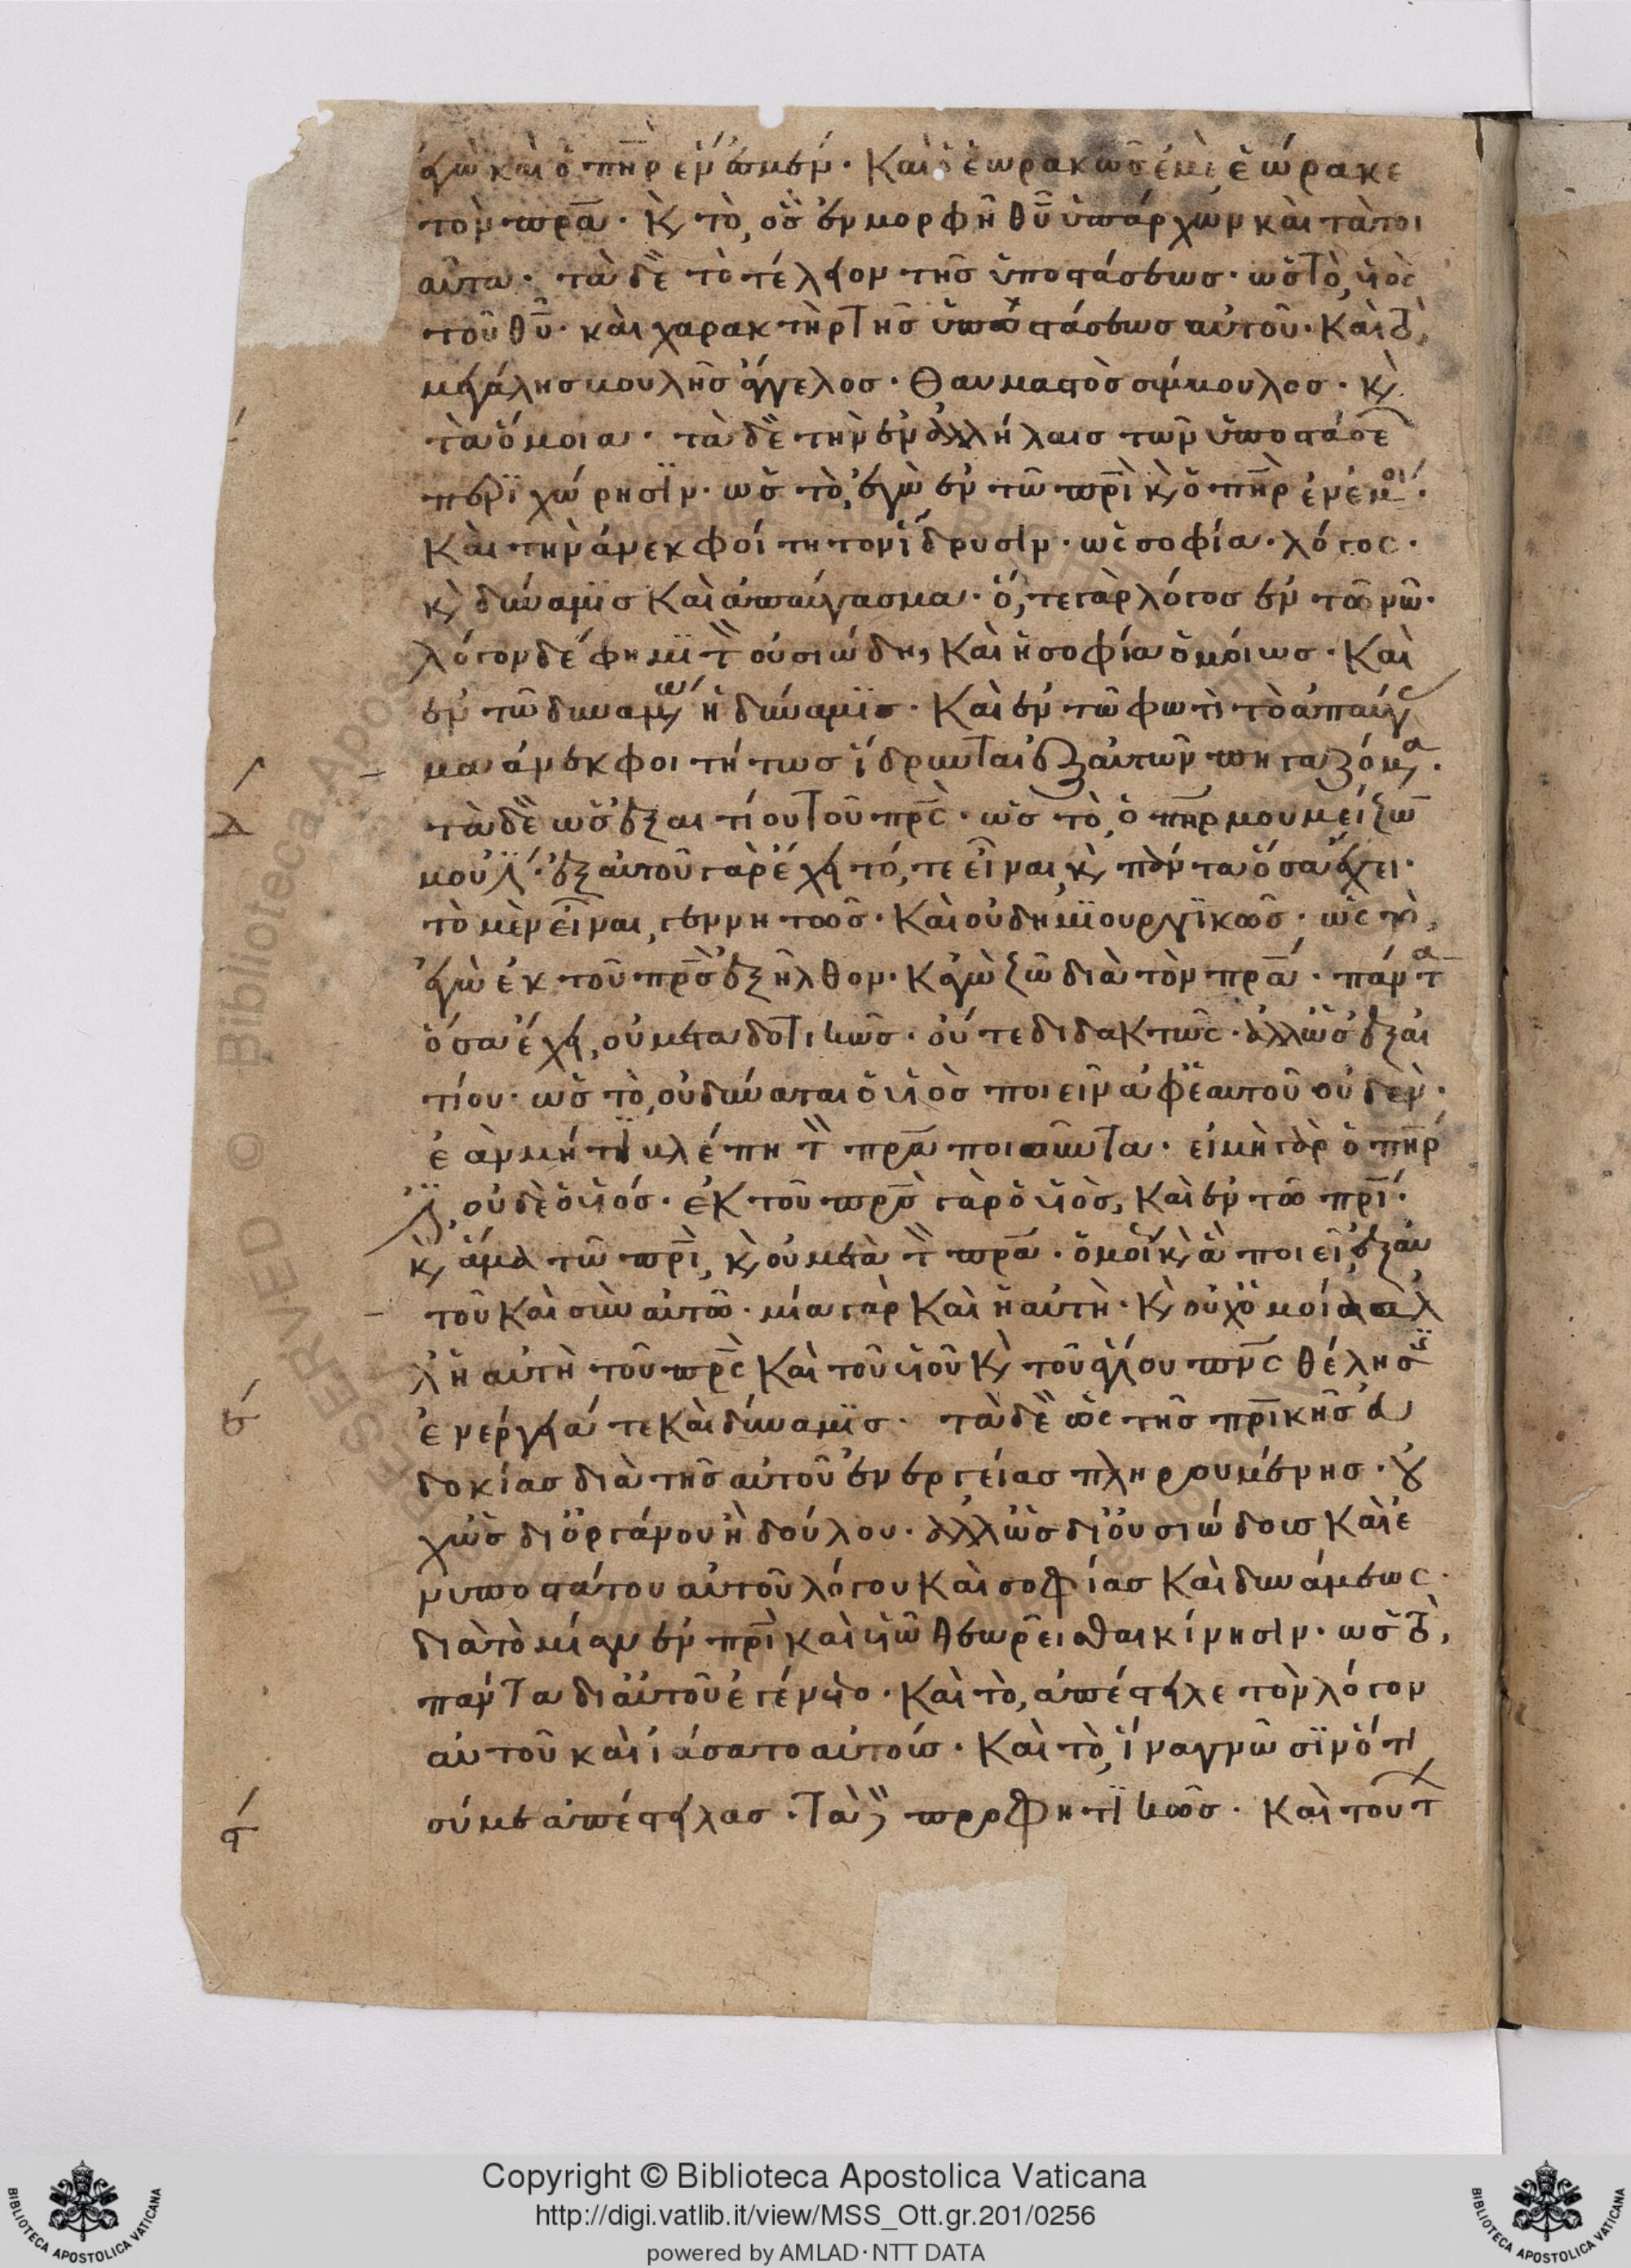 ἐγὼ καὶ ὁ πηρ ἕν ἐσμεν· Καὶ ὁ ἑωρακὼς ἐμὲ, ἑώρακε
τὸν πρα· κ τὸ, ὃς ἐν μορφῆ θυ ὑπάρχων καὶ τὰ τοι
αῦτα· τὰ δὲ τὸ τέλειον τῆς ὑποστάσεως· ὡς τὸ, υἱος
τοῦ θυ· καὶ χαρακτὴρ τῆς ὑποστάσεως αὐτοῦ· Καὶ τὸ,
μεγάλης βουλῆς ἄγγελος· θαυμαστὸς σύμβουλος· κ
τὰ ὅμοια· τὰ δὲ τὴν ἐν ἀλλήλαις τῶν ὑποστάσε
περιχώρησιν· ὡς τὸ, ἐγὼ ἐν τῶ πρὶ κ ὁ πηρ ἐν ἐμοί·
Καὶ τὴν ἀνεκφοίτητον ἵδρυσιν· ὡς σοφία· λόγος·
κ δύναμις Καὶ ἀπαύγασμα· ὅ, τε γὰρ λόγος ἐν τῶ νῶ·
λόγον δέ φημι τ οὐσιώδη, Καὶ ἡ σοφία ὁμοίως· Καὶ
ἐν τῶ δυναμένω ἡ δύναμις· Καὶ ἐν τῶ φωτὶ τὸ ἀπαύγ
μα ἀνεκφοιτήτως ἵδρυται ἐξ αὐτῶν πηγαζόμενα·
τὰ δὲ ὡς ἐξ αιτίου τοῦ πρς· ὡς τὸ, ὁ πηρ μου μείζων
μου ἐστί· ἐξ αὐτοῦ γὰρ ἔχει τό, τε εἶναι, κ πάντα ὅσα ἔχει·
τὸ μὲν εἶναι, γεννητῶς· Καὶ οὐ δημιουργικῶς· ὡς τὸ,
ἐγὼ ἐκ τοῦ πρς ἐξῆλθον· Κἀγὼ ζῶ διὰ τὸν πρα· πάντα
ὅσα ἔχει, οὐ μεταδοτικῶς· οὔτε διδακτῶς· ἀλλ ὡς ἐξ αἰ
τίου· ὡς τὸ, οὐ δύναται ὁ υἱὸς ποιεῖν ἀφ ἑαυτοῦ οὐδὲν·
ἐὰν μή τι βλέπη τ πρα ποιοῦντα· εἰ μὴ γὰρ ὁ πηρ
ἐστὶ, οὐδὲ ὁ υἱός· ἐκ τοῦ πρς γὰρ ὁ υἱὸς, Καὶ ἐν τῶ πρί·
κ ἅμα τῶ πρὶ, κ οὐ μετὰ τ πρα· ὁμοί κ ἃ ποιεῖ, ἐξ αὐ
τοῦ Καὶ σὺν αὐτῶ· μία γὰρ Καὶ ἡ αὐτὴ· κ οὐχ ὁμοία ἀλ
λ ἡ αὐτὴ τοῦ πρς Καὶ τοῦ υἱοῦ κ τοῦ ἁγίου πνς θέλησις
ἐνέργειά τε Καὶ δύναμις· τὰ δὲ ὡς τῆς πρικῆς εὐ
δοκίας διὰ τῆς αὐτοῦ ἐνεργείας πληρουμένης· οὐ
χ ὡς δι ὀργάνου ἢ δούλου· ἀλλ ὡς δι οὐσιώδους Καὶ ἐ
νυποστάτου αὐτοῦ λόγου Καὶ σοφίας Καὶ δυνάμεως·
διὰ τὸ μίαν ἐν πρὶ καὶ υἱῶ θεωρεῖσθαι κίνησιν· ὡς τὸ,
πάντα δι αὐτοῦ ἐγένετο· Καὶ τὸ, ἀπέστειλε τὸν λόγον
αὐτοῦ καὶ ἰάσατο αὐτούς· Καὶ τὸ, ἵνα γνῶσιν ὅτι
σύ με ἀπέστειλας· Τὰ δὲ προφητικῶς· Καὶ τούτ
Copyright © Biblioteca Apostolica Vaticana
http://digi.vatlib.it/view/MSS_Ott.gr.201/0256
powered by AMLAD·NTT DATA
BIBLIOTECA APOSTOLICA VATICANA
BIBLIOTECA APOSTOLICA VATICANA